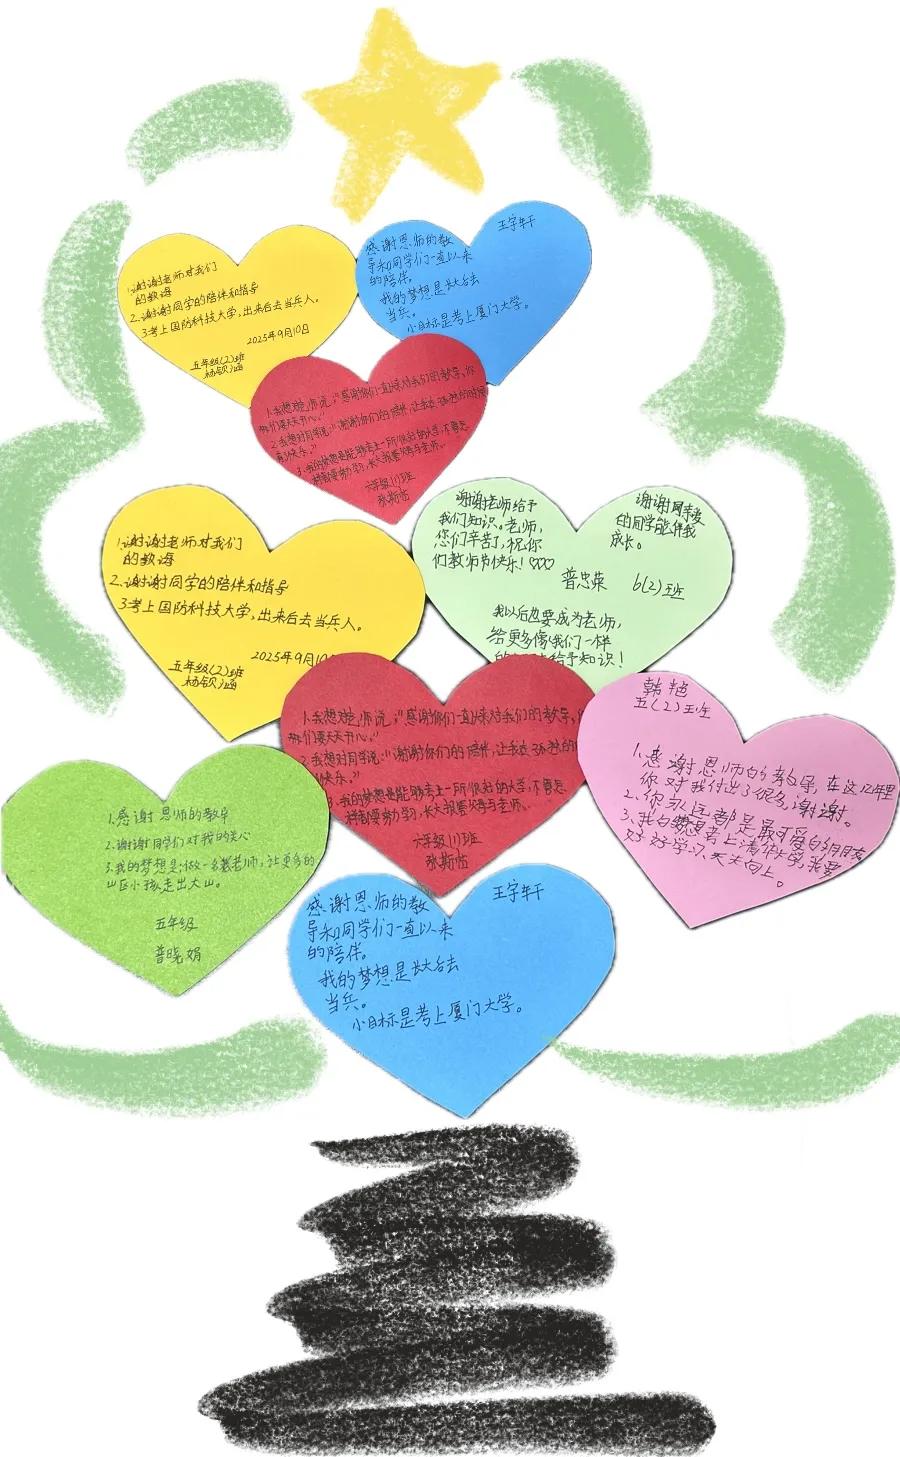 1.谢谢老师对我们
的教诲
2.谢谢同学的陪伴和指导
3考上国防科技大学,出来后去当兵人。
2025年9月10日
五年级(2)班
杨钦涵
王宇轩
感谢恩师的教
导和同学们一直以来
的陪伴。
我的梦想是长大后去
当兵。
小目标是考上厦门大学。
1.我想对老师说:"感谢你们一直以来对我们的教导,你
们要天天开心。"
2.我想对同学说:"谢谢你们的陪伴,让我在孤独的时候
快乐。"
3.我的梦想是能够考上一所很好的大学,不管怎
样都要努力学习,长大报答父母与老师。
六年级(1)班
张斯怡
1.谢谢老师对我们
的教诲
2.谢谢同学的陪伴和指导
3考上国防科技大学,出来后去当兵人。
2025年9月10
五年级(2)班
杨钦涵
谢谢老师给予
我们知识。老师,
您们辛苦了,祝你
们教师节快乐!♡♡♡
谢谢同学
的同学能伴我
成长。
普忠荣 6(2)班
我以后也要成为老师,
给更多像我们一样
给予知识!
1.我想对老师说:"感谢你们一直以来对我们的教导,
你们要天天开心。"
2.我想对同学说:"谢谢你们的陪伴,让我在孤独的
快乐。"
3.我的梦想是能够考上一所很好的大学,不管怎
样都要努力学习,长大报答父母与老师。
六年级(1)班
张斯怡
韩艳
五(2)班
1.感谢恩师的教导,在这12年里
你对我付出了很多,谢谢。
2.你永远都是最可爱的朋友
3.我的梦想考上清华大学我要
好好学习天天向上。
1.感谢恩师的教导
2.谢谢同学们对我的关心
3.我的梦想是做一名老师,让更多的
山区小孩走出大山。
五年级
普晓娟
王宇轩
感谢恩师的教
导和同学们一直以来
的陪伴。
我的梦想是长大后去
当兵。
小目标是考上厦门大学。